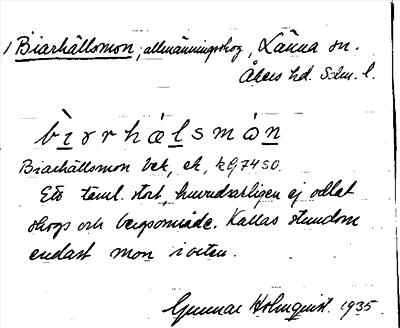 1 Biarhällsmon, allmänningsskog, Länna sn.
Åkers hd. Sdm. l.
bi̱rrhälsmón
Biarhällsmon bek, ek, kg7450.
Ett täml. stort, huvudsakligen ej odlat
skogs och bergsområde. Kallas stundom
endast mon i orten.
Gunnar Holmquist. 1935